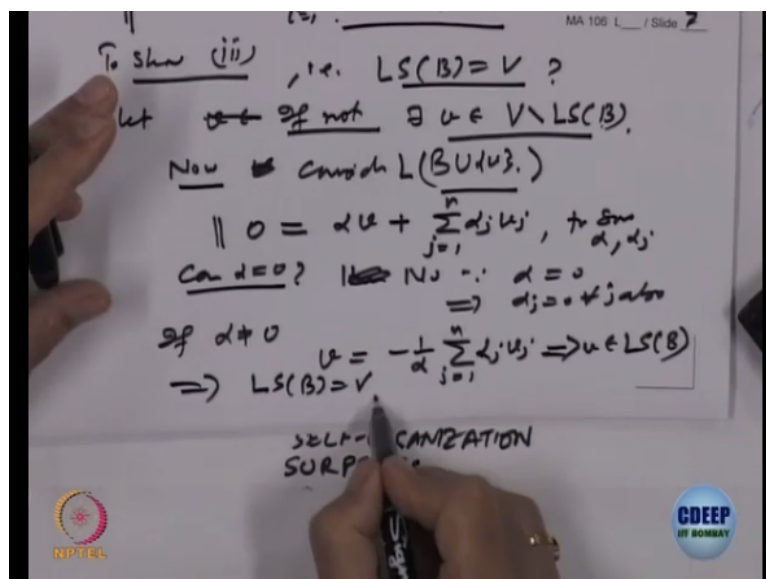 MA 106 L__ / Slide 7
To show (ii) , i.e. LS(B) = V ?
Let If not ∃ v ∈ V \ LS(B).
Now Consider L(B ∪ {v}.)
|| 0 = αv + Σ_{j=1}^{n} α_j v_j, for some α, α_j
Can α = 0 ? No ∵ α = 0
⇒ α_j = 0 ∀ j also
If α ≠ 0
v = -1/α Σ_{j=1}^{n} α_j v_j ⇒ v ∈ LS(B)
⇒ LS(B) = V
NPTEL
CDEEP
IIT BOMBAY